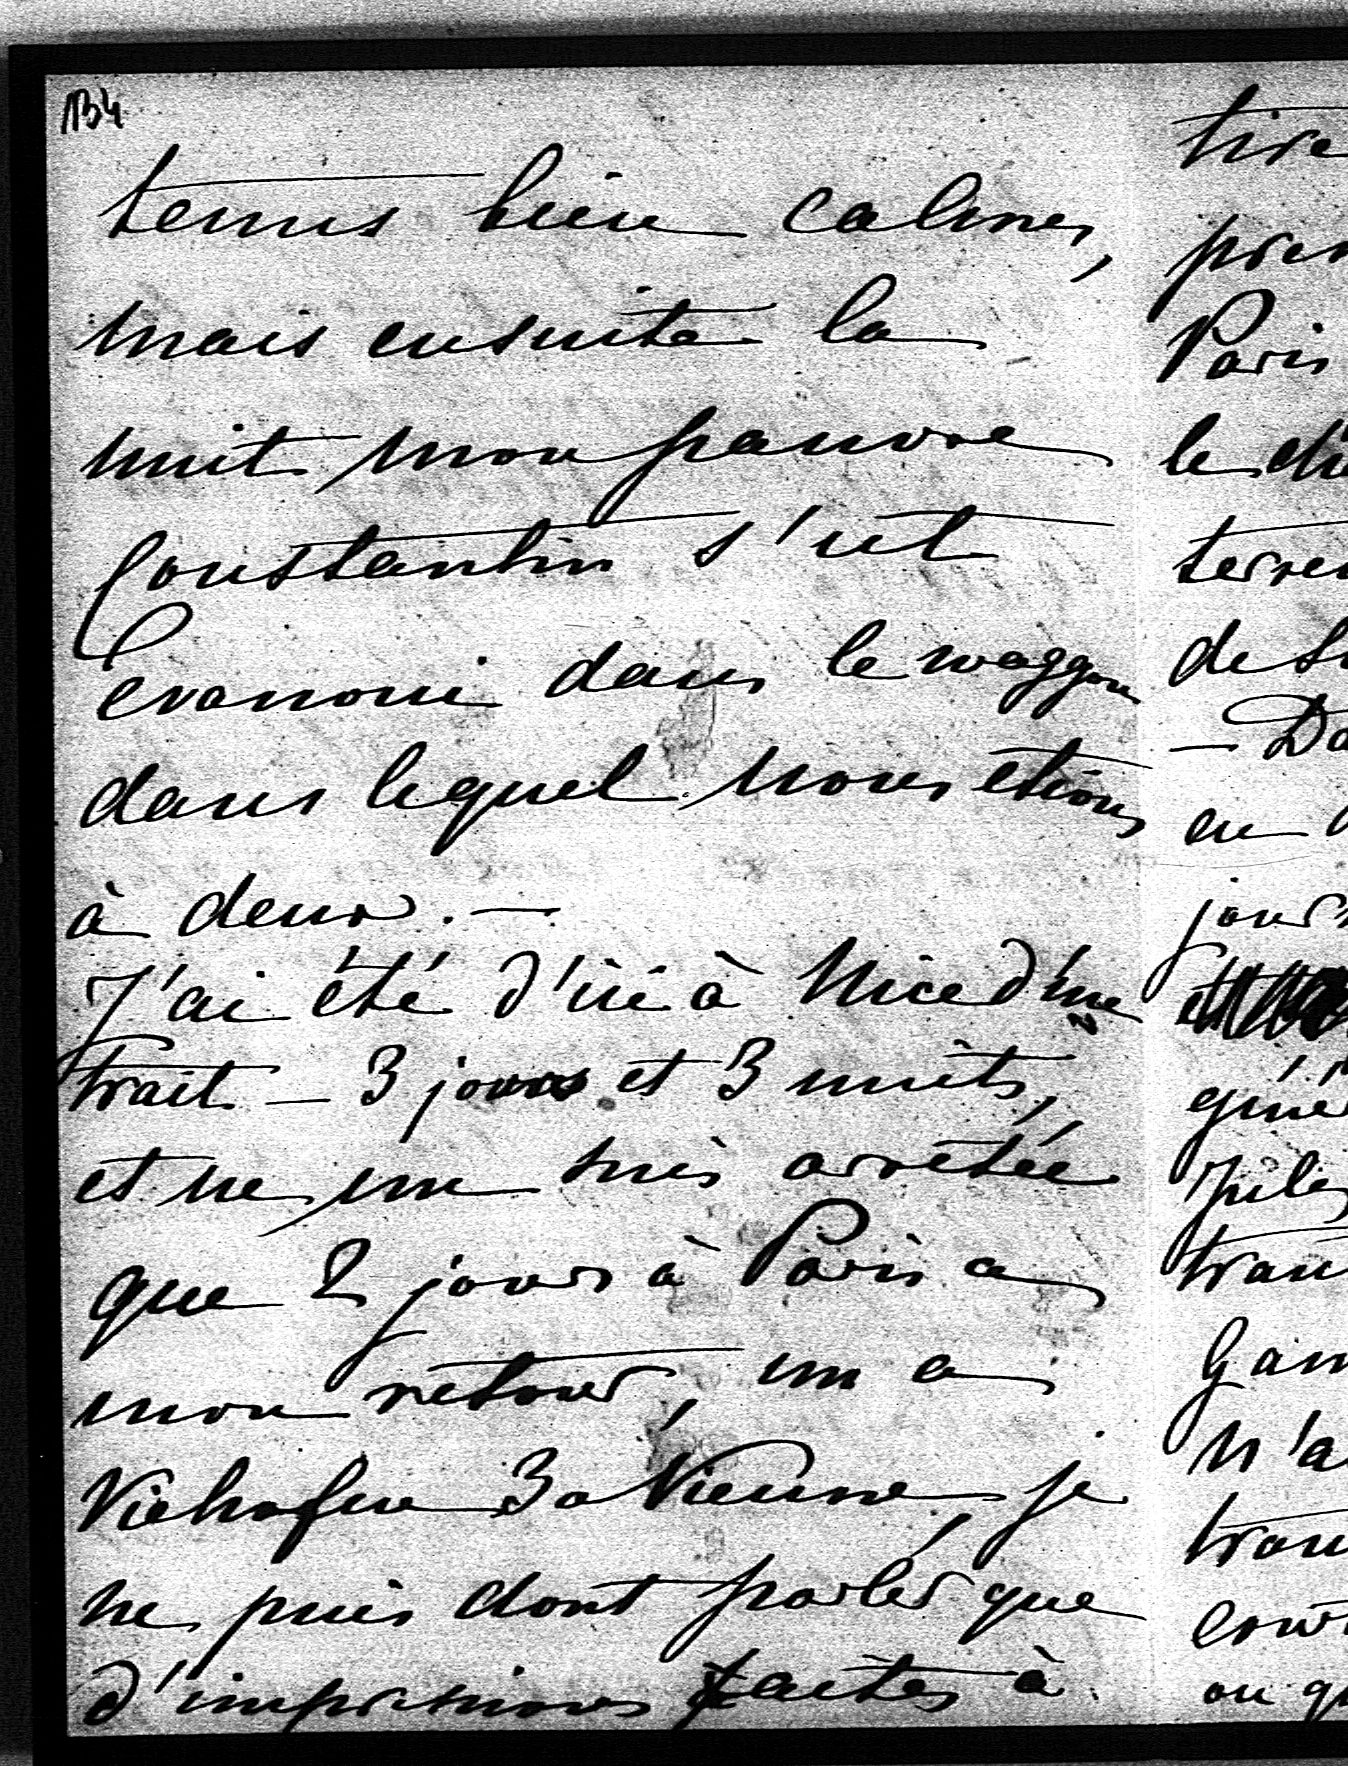 134
tenus bien calmes,
mais ensuite la
nuit mon pauvre
Constantin s'est
evanoui dans le waggon
dans lequel nous etions
à deux. —
J'ai été d'ici à Nice d'une
trait — 3 jours et 3 nuits,
et ne me suis arrêtée
que 2 jours à Paris a
mon retour, un a
Viehofen 3 a Vienne, je
ne puis dont parler que
d'impressions faites à
tire
pren
Paris
le
terre
de
— Da
en
jour
géné
Jules
tran
Gam
N'a
tran
cour
ou qu